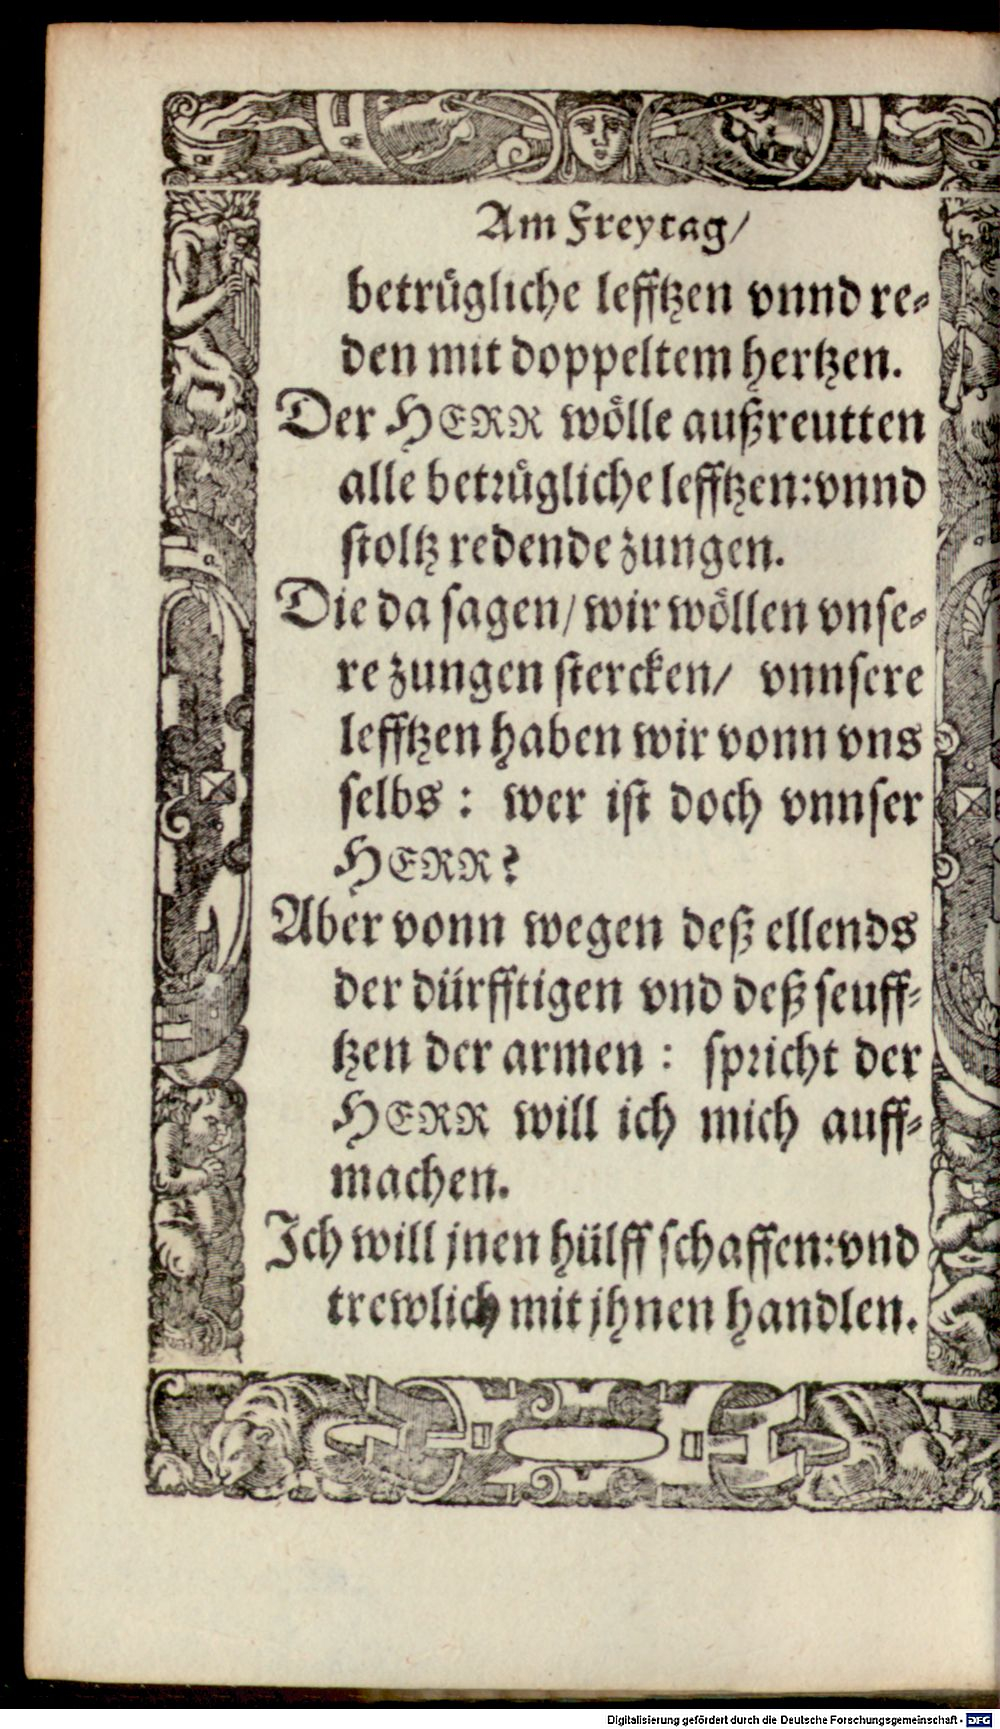 Am Freytag/
betrügliche lefftzen vnnd re⸗
den mit doppeltem hertzen.
Der HERR wölle außreutten
alle betrügliche lefftzen: vnnd
stoltz redende zungen.
Die da sagen/ wir wöllen vnse⸗
re zungen stercken/ vnnsere
lefftzen haben wir vonn vns
selbs: wer ist doch vnnser
HERR?
Aber vonn wegen deß ellends
der dürfftigen vnd deß seuff⸗
tzen der armen: spricht der
HERR will ich mich auff⸗
machen.
Ich will jnen hülff schaffen: vnd
trewlich mit jhnen handlen.
Digitalisierung gefördert durch die Deutsche Forschungsgemeinschaft - DFG